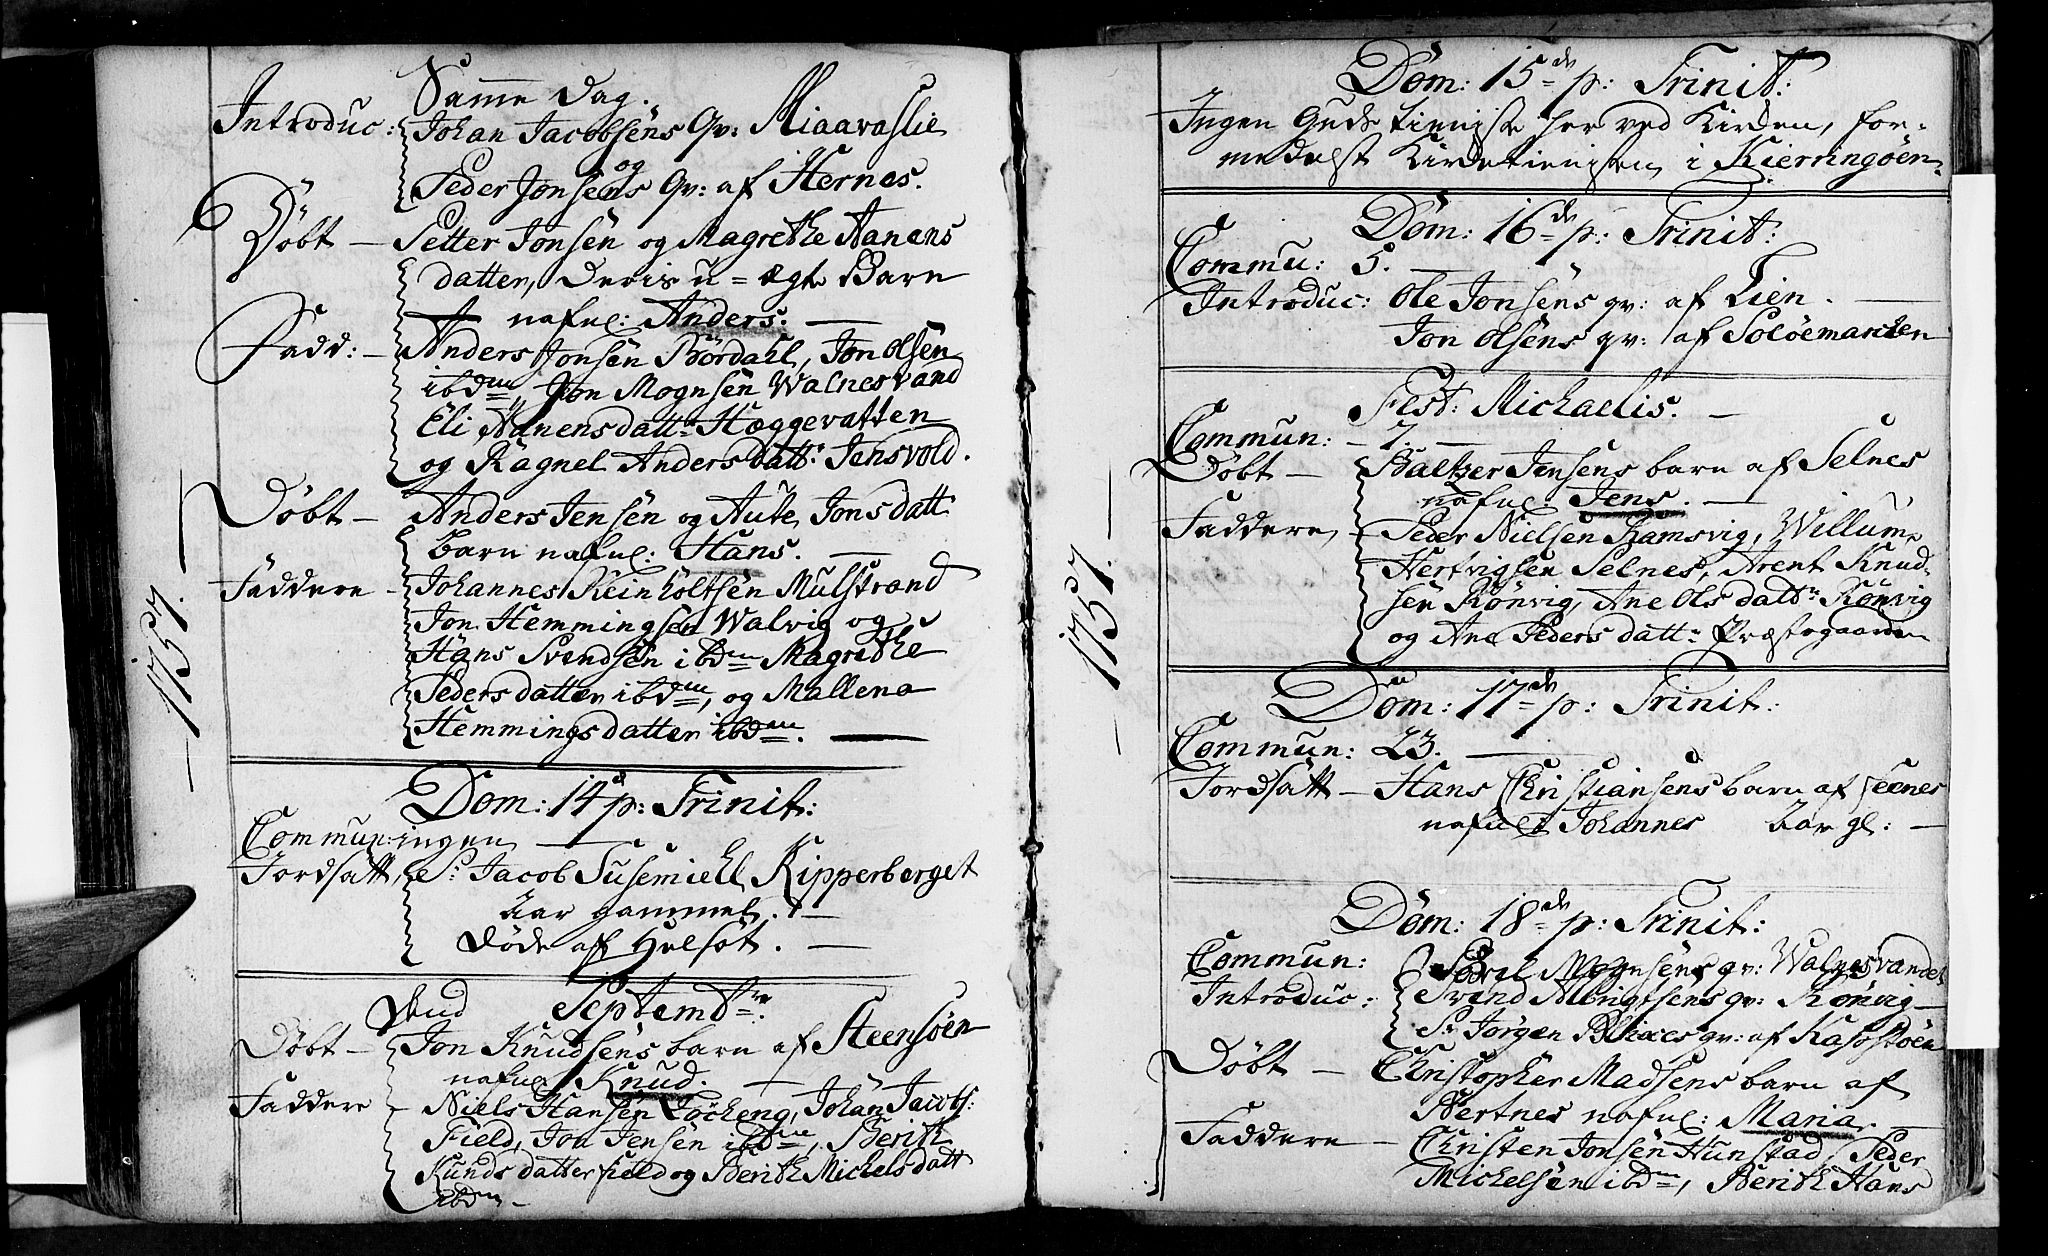 Samme Dag.
Introduc: Johan Jacobsens Qv: Miaavaslie
og
Peder Jonsens Qv: af Hernes.
Døbt — Petter Jonsen og Magrethe Aanens
datter, Deris u-ægte Barn
nafnl: Anders. —
Fadd: — Anders Jonsen Børdahl, Jon Olsen
ibdm, Jon Mognsen Walnesvand
Eli Aanensdattr Hæggevatten
og Ragnel Andersdattr: Jensvold.
Døbt — Anders Jensen og Aute Jonsdatt:
barn nafnl: Hans. —
Faddere — Johannes Reinholtsen Mulstrand
Jon Hemmingsen Walvig og
Hans Svendsen ibdm Magrethe
Pedersdatter ibdm, og Mallena
Hemmingsdatter ibdm. —
1757.
Dom: 14 p: Trinit:
Commun: ingen —
Jordsatt, Sr Jacob Susemiehl Kipperberget
Aar gammel. —
Døde af Hulsot. —
Septembr:
Døbt — Jon Knudsens barn af Steensøen
nafnl. Knud. —
Faddere — Niels Hansen Løcheng, Johan Jacobs:
Field, Jon Jensen ibdm, Berith
Kundsdatter field og Berith Michelsdatt
ibdm —
Dom: 15de p: Trinit:
Ingen Guds tieniste her ved Kirken, for-
medelst Kirketienisten i Kierringøen
Dom: 16de p: Trinit:
Commu: 5. —
Introduc: Ole Jonsens qv: af Lien. —
Jon Olsens qv: af Soløemarken
Fest: Michaelis. —
Commun: — 7. —
Døbt — Baltzer Jensens barn af Selnes
nafnl. Jens. —
Faddere, — Peder Nielsen Ramsvig, Willum
Hertvigsen Selnes, Arent Knud-
sen Rønvig, Ane Olsdattr: Rønvig
og Ane Pedersdattr: Præstegaarden
1757.
Dom: 17de p: Trinit:
Commun: 23. —
Jordsatt — Hans Christiansens barn af
nafnl Johannes Aar gl: —
Dom: 18de p: Trinit:
Commun: Mognsens qv: Walnesvandet
Introduc: Svend Albrigtsens qv: Rønvig
Sr Jørgen qv: af
Døbt — Christopher Madsens barn af
Bertnes nafnl: Maria. —
Faddere — Christen Jonsen Hunstad, Peder
Michelsen ibdm, Berith Hans